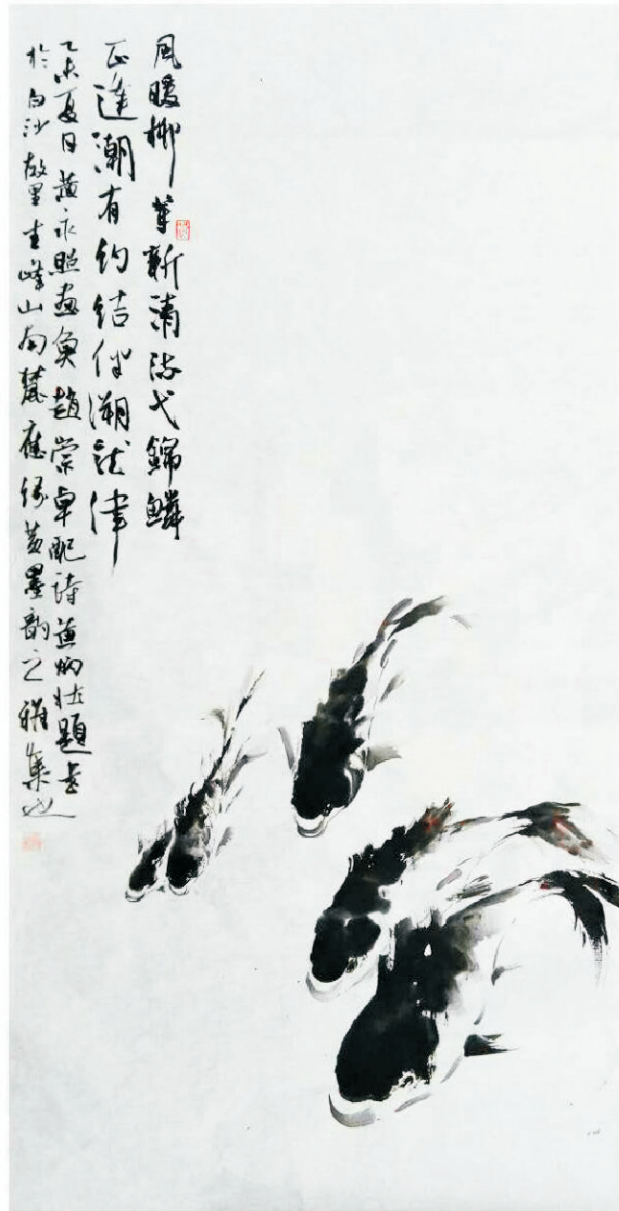 風暖柳芽新清流弋錦鱗
正逢潮有約結伴溯龍津
乙未夏日黃永照画魚趙崇卓配詩炳壮題書
於白沙故里圭峰山南麓應緣墨韵之雅集也